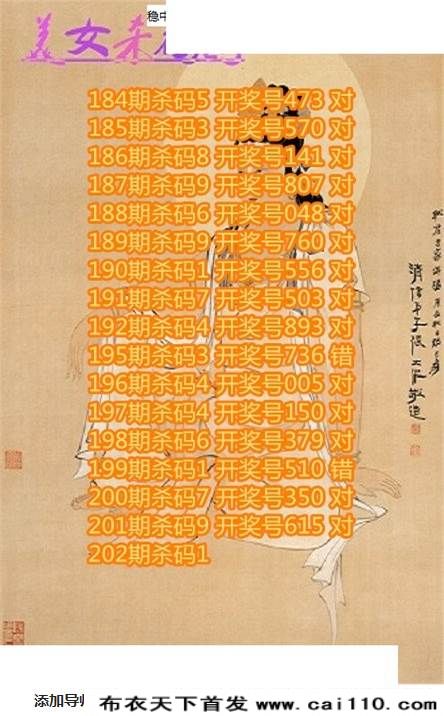 稳中
美女杀
184期杀码5 开奖号473 对
185期杀码3 开奖号570 对
186期杀码8 开奖号141 对
187期杀码9 开奖号807 对
188期杀码6 开奖号048 对
189期杀码9 开奖号760 对
190期杀码1 开奖号556 对
191期杀码7 开奖号503 对
192期杀码4 开奖号893 对
195期杀码3 开奖号736 错
196期杀码4 开奖号005 对
197期杀码4 开奖号150 对
198期杀码6 开奖号379 对
199期杀码1 开奖号510 错
200期杀码7 开奖号350 对
201期杀码9 开奖号615 对
202期杀码1
添加导
布衣天下首发 www.cai110.com